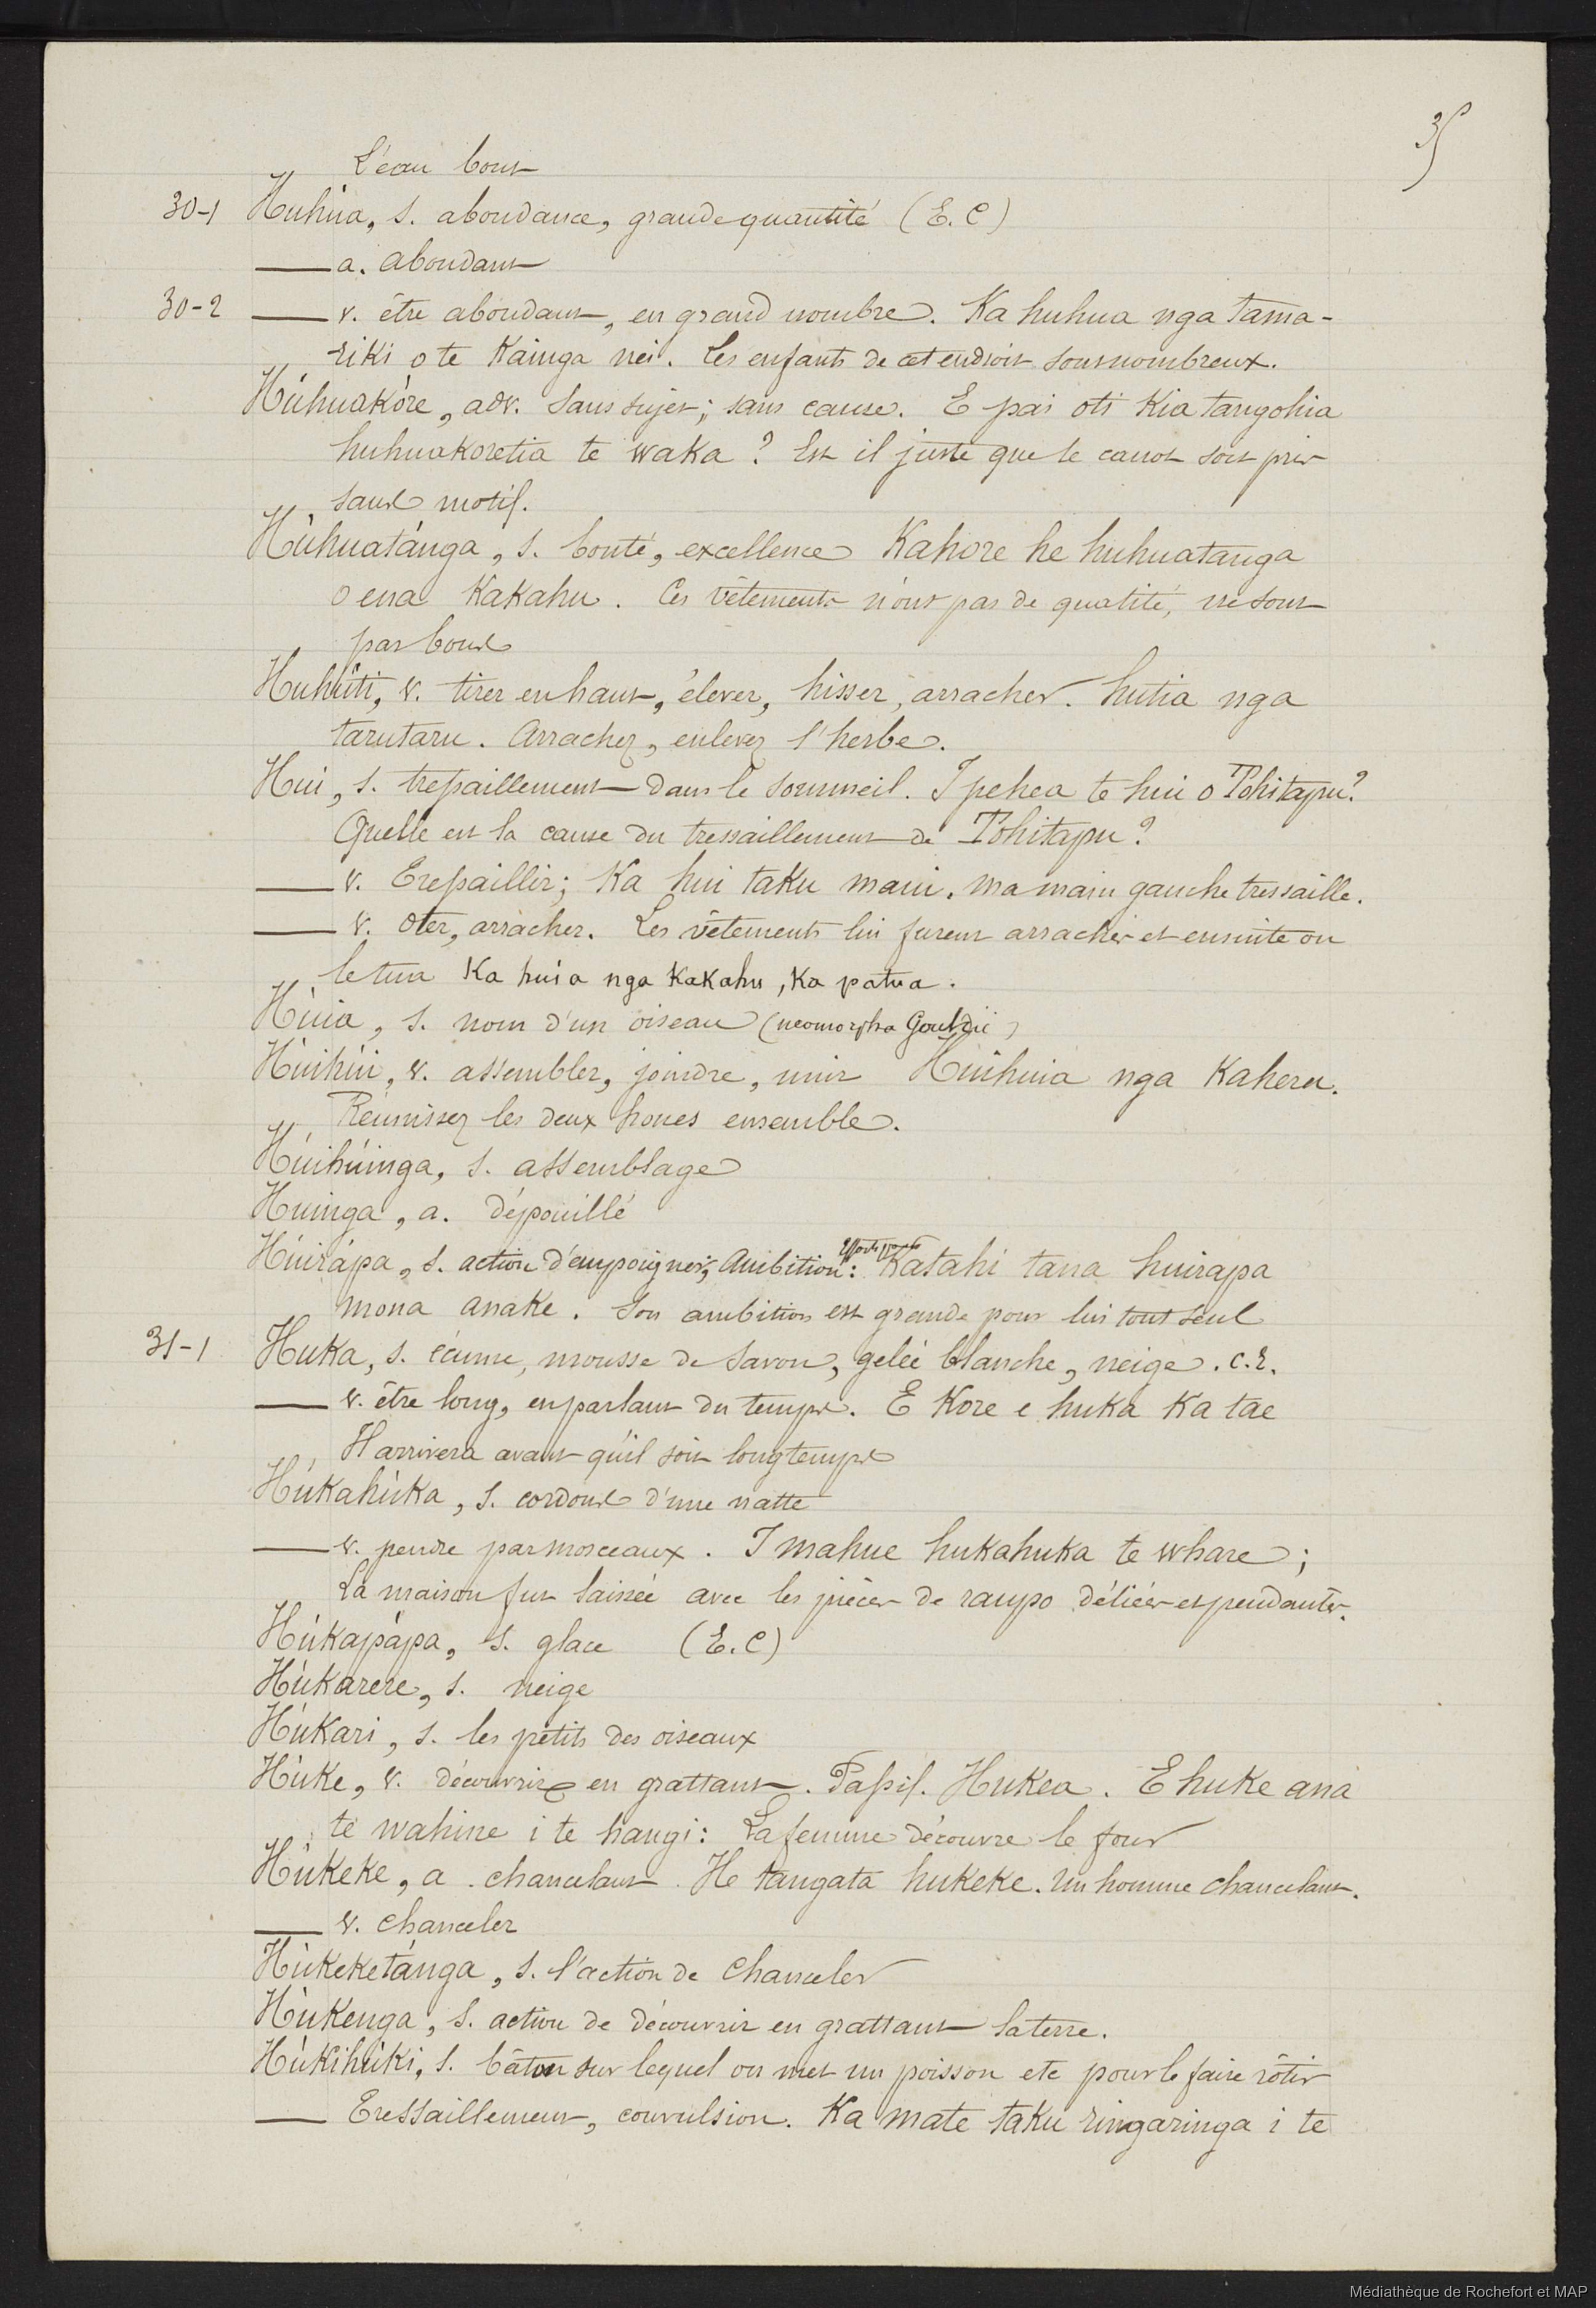 35
L'eau bout
30-1 Huhúa, s. abondance, grande quantité (E. C)
— a. abondant
30-2 — v. être abondant, en grand nombre. Ka huhua nga tama-
riki o te Kainga nei. Les enfants de cet endroit sont nombreux.
Húhuakóre, adv. Sans sujet; sans cause. E pai oti Kia tangohia
huhuakoretia te waka? Est il juste que le canot soit pris
sans motif.
Húhuatánga, s. bonté, excellence Kahore he huhuatanga
o ena Kakahu. Ces vêtements n'ont pas de qualité, ne sont
pas bons
Huhúti, v. tirer en haut, élever, hisser, arracher. hutia nga
tarutaru. Arrachez, enlevez l'herbe.
Hui, s. tressaillement dans le sommeil. I pehea te hui o Tohitapu?
Quelle est la cause du tressaillement de Tohitapu?
— v. Tressaillir; Ka hui taku maui. ma main gauche tressaille.
— v. Oter, arracher. Les vêtements lui furent arrachés et ensuite on
le tua Ka huia nga Kakahu, Ka patua.
Húia, s. nom d'un oiseau (neomorpha Gouldii)
Húihúi, v. assembler, joindre, unir Huihuia nga Kaheru.
Réunissez les deux houes ensemble.
Húihúinga, s. assemblage
Huinga, a. dépouillé
Húirápa, s. action d'empoigner; Ambition: Katahi tana huirapa
mona anake. Son ambition est grande pour lui tout seul
31-1 Huka, s. écume, mousse de savon, gelée blanche, neige. C.E.
— v. être long, en parlant du temps. E Kore e huka Ka tae
Il arrivera avant qu'il soit longtemps
Húkahúka, s. cordons d'une natte
— v. pendre par morceaux. I mahue hukahuka te whare;
La maison fut laissée avec les pièces de raupo déliées et pendantes.
Húkapápa, s. glace (E. C)
Húkarere, s. neige
Húkari, s. les petits des oiseaux
Húke, v. découvrir en grattant. Passif. Hukea. E huke ana
te wahine i te hangi: La femme découvre le four
Húkeke, a. chancelant. He tangata hukeke. Un homme chancelant.
— v. chanceler
Húkeketánga, s. l'action de chanceler
Húkenga, s. action de découvrir en grattant la terre.
Húkihúki, s. bâton sur lequel on met un poisson etc pour le faire rôtir
— Tressaillement, convulsion. Ka mate taku ringaringa i te
Médiathèque de Rochefort et MAP